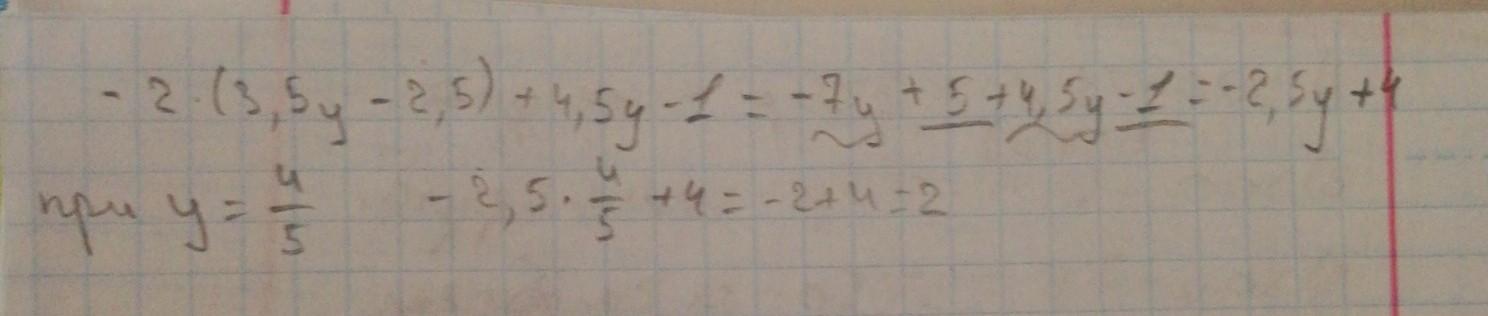 - 2 · (3,5y - 2,5) + 4,5y - 1 = -7y + 5 + 4,5y - 1 = -2,5y + 4
при y = 4/5 - 2,5 · 4/5 + 4 = -2 + 4 = 2